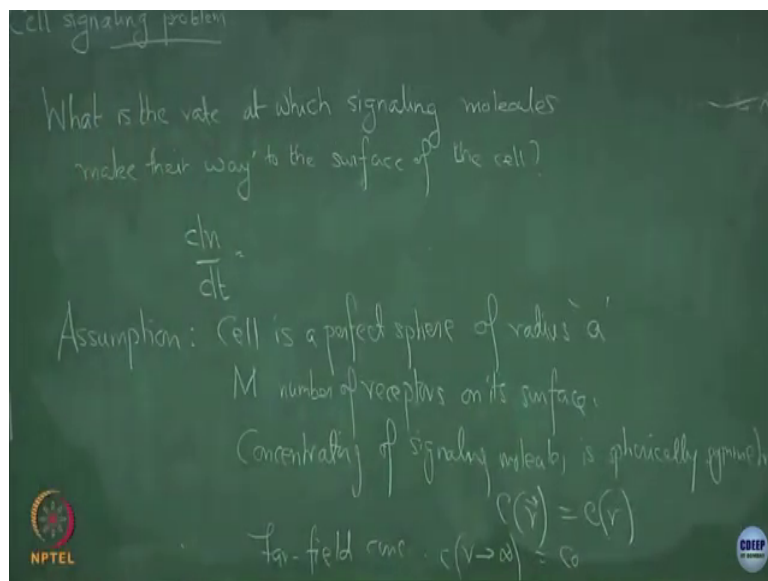 Cell signaling problem
What is the rate at which signaling molecules
make their way to the surface of the cell?
dn
dt
Assumption: Cell is a perfect sphere of radius 'a'
M number of receptors on its surface.
Concentrating of signaling molecules is spherically symmetri
C(r⃗) = c(r)
Far-field conc. c(r→∞) = c₀
NPTEL
CDEEP
IIT BOMBAY